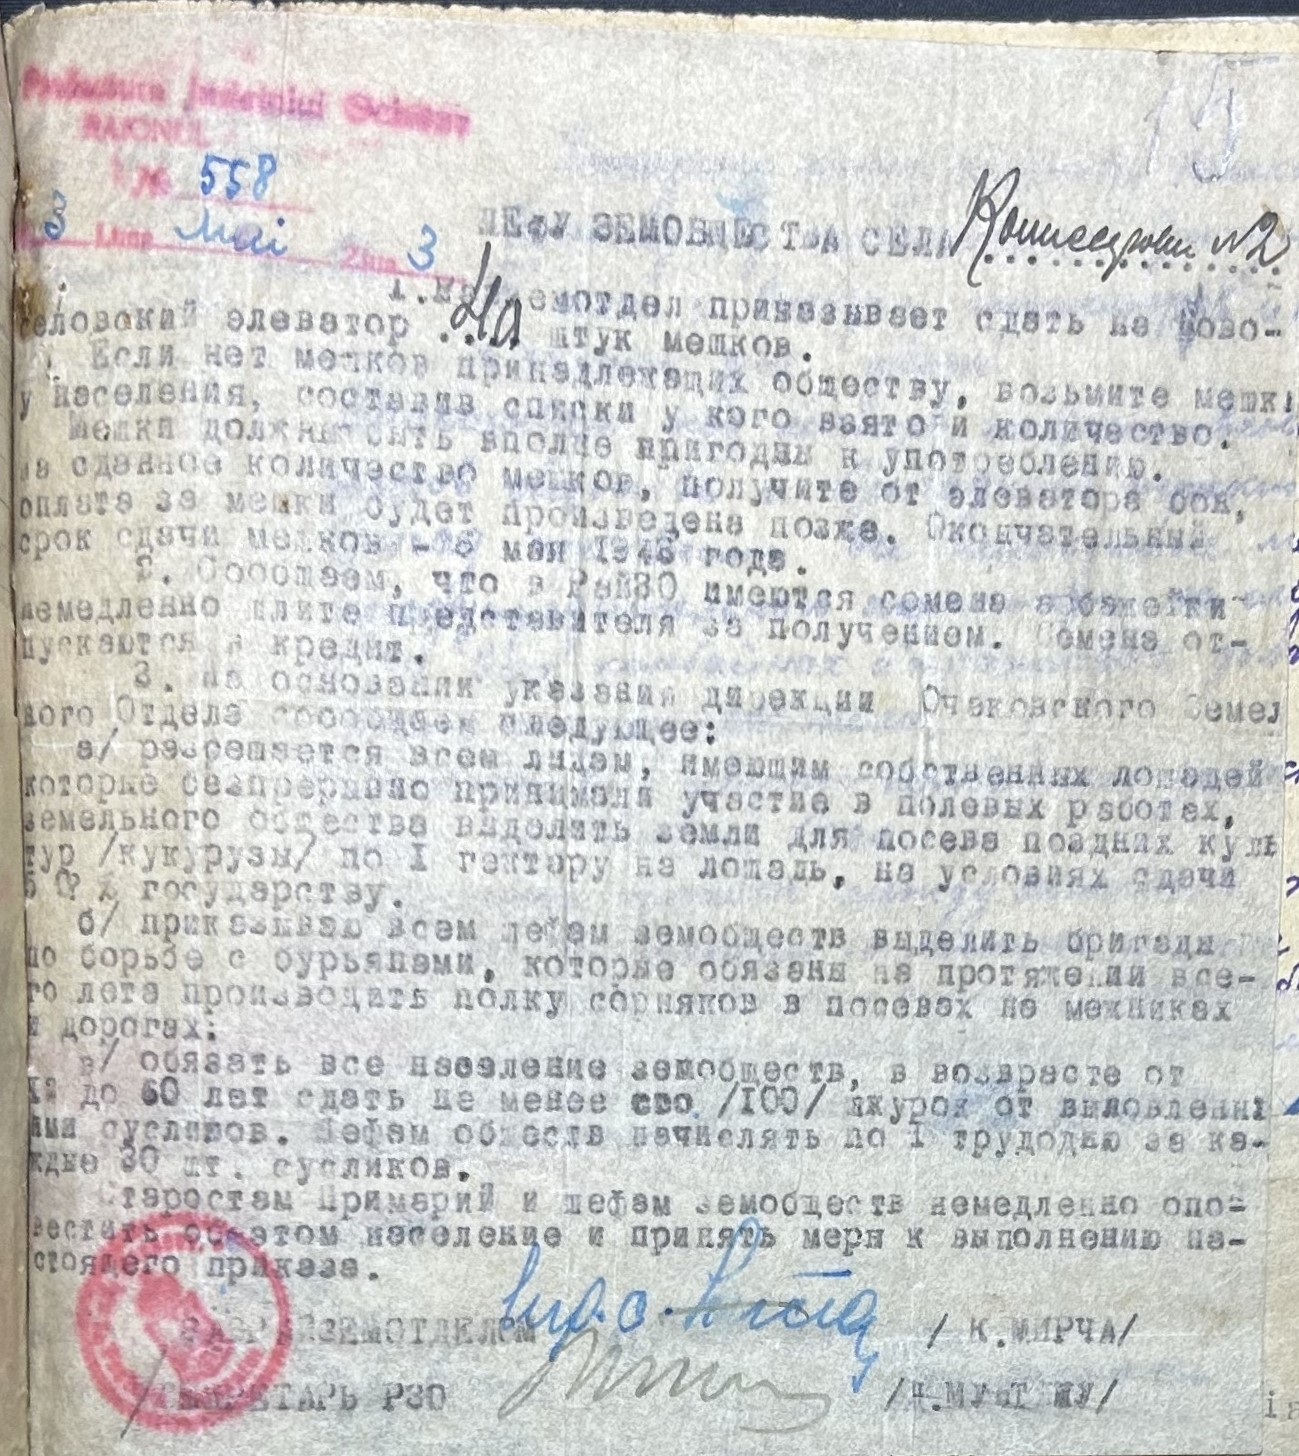 Prefectura Județului Oceacov
RAIONUL
№ 558
3 Luna Mai 3
15
ШЕФУ ЗЕМОБЩЕСТВА СЕЛА
№2
1. земотдел приказывает сдать на Ново-
элеватор штук мешков.
Если нет мешков принадлежащих обществу, возьмите мешки
у населения, составив списки у кого взято и количество.
Мешки должны быть вполне пригодны к употреблению.
на сданное количество мешков, получите от элеватора бон,
оплата за мешки будет произведена позже. Окончательный
срок сдачи мешков - мая года.
2. Сообщаем, что в РайЗО имеются семена
немедленно шлите представителя за получением. Семена от-
пускаются в кредит.
3. На основании указания дирекции Очаковского Земель
ного Отдела сообщаем следующее:
а/ разрешается всем лицам, имеющим собственных лошадей
которые безпрерывно принимали участие в полевых работах,
земельного общества выделять земли для посева поздних куль
тур /кукурузы/ по I гектару на лошадь, на условиях сдачи
государству.
б/ приказываю всем шефам земобществ выделить бригады
по борьбе с бурьянами, которые обязаны на протяжении все-
го лета производить полку сорняков в посевах на межниках
и дорогах:
в/ обязать все население земобществ, в возврасте от
до 60 лет сдать не менее сто /100/ шкурок от выловленны
ими сусликов. Шефам обществ начислять по I трудодню за ка-
ждые 30 шт. сусликов.
Старостам Примарий и шефам земобществ немедленно опо-
вестить об этом население и принять меры к выполнению на-
стоящего приказа.
ЗАВ РАЙЗЕМОТДЕЛОМ / К.МИРЧА/
/СЕКРЕТАРЬ РЗО